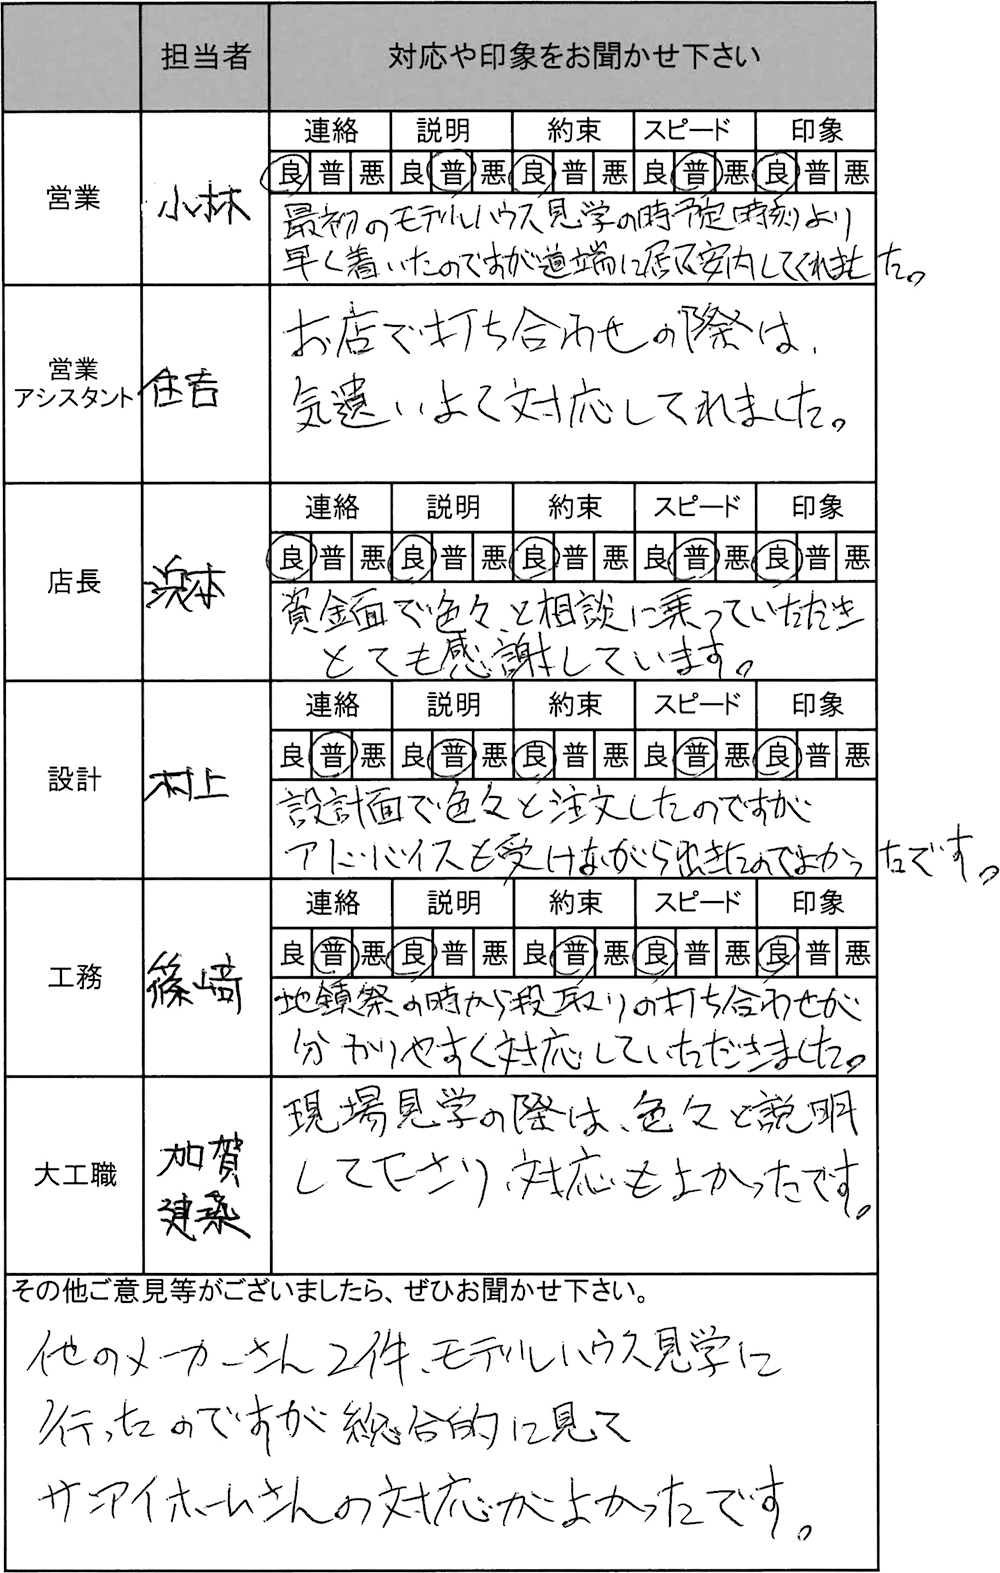 担当者 対応や印象をお聞かせ下さい
連絡 説明 約束 スピード 印象
良 普 悪 良 普 悪 良 普 悪 良 普 悪 良 普 悪
営業 小林
最初のモデルハウス見学の時予定時刻より
早く着いたのですが道端に居て案内してくれました。
お店で打ち合わせの際は、
営業
アシスタント 住吉
気遣いよく対応してくれました。
連絡 説明 約束 スピード 印象
良 普 悪 良 普 悪 良 普 悪 良 普 悪 良 普 悪
店長 浜本
資金面で色々と相談に乗っていただき
とても感謝しています。
連絡 説明 約束 スピード 印象
良 普 悪 良 普 悪 良 普 悪 良 普 悪 良 普 悪
設計 村上
設計面で色々と注文したのですが
アドバイスも受けながら出きたのでよかったです。
連絡 説明 約束 スピード 印象
良 普 悪 良 普 悪 良 普 悪 良 普 悪 良 普 悪
工務 篠﨑
地鎮祭の時から段取りの打ち合わせが
分かりやすく対応していただきました。
現場見学の際は、色々と説明
大工職 加賀
建築
して下さり、対応もよかったです。
その他ご意見等がございましたら、ぜひお聞かせ下さい。
他のメーカーさん2件、モデルハウス見学に
行ったのですが総合的に見て
サンアイホームさんの対応がよかったです。